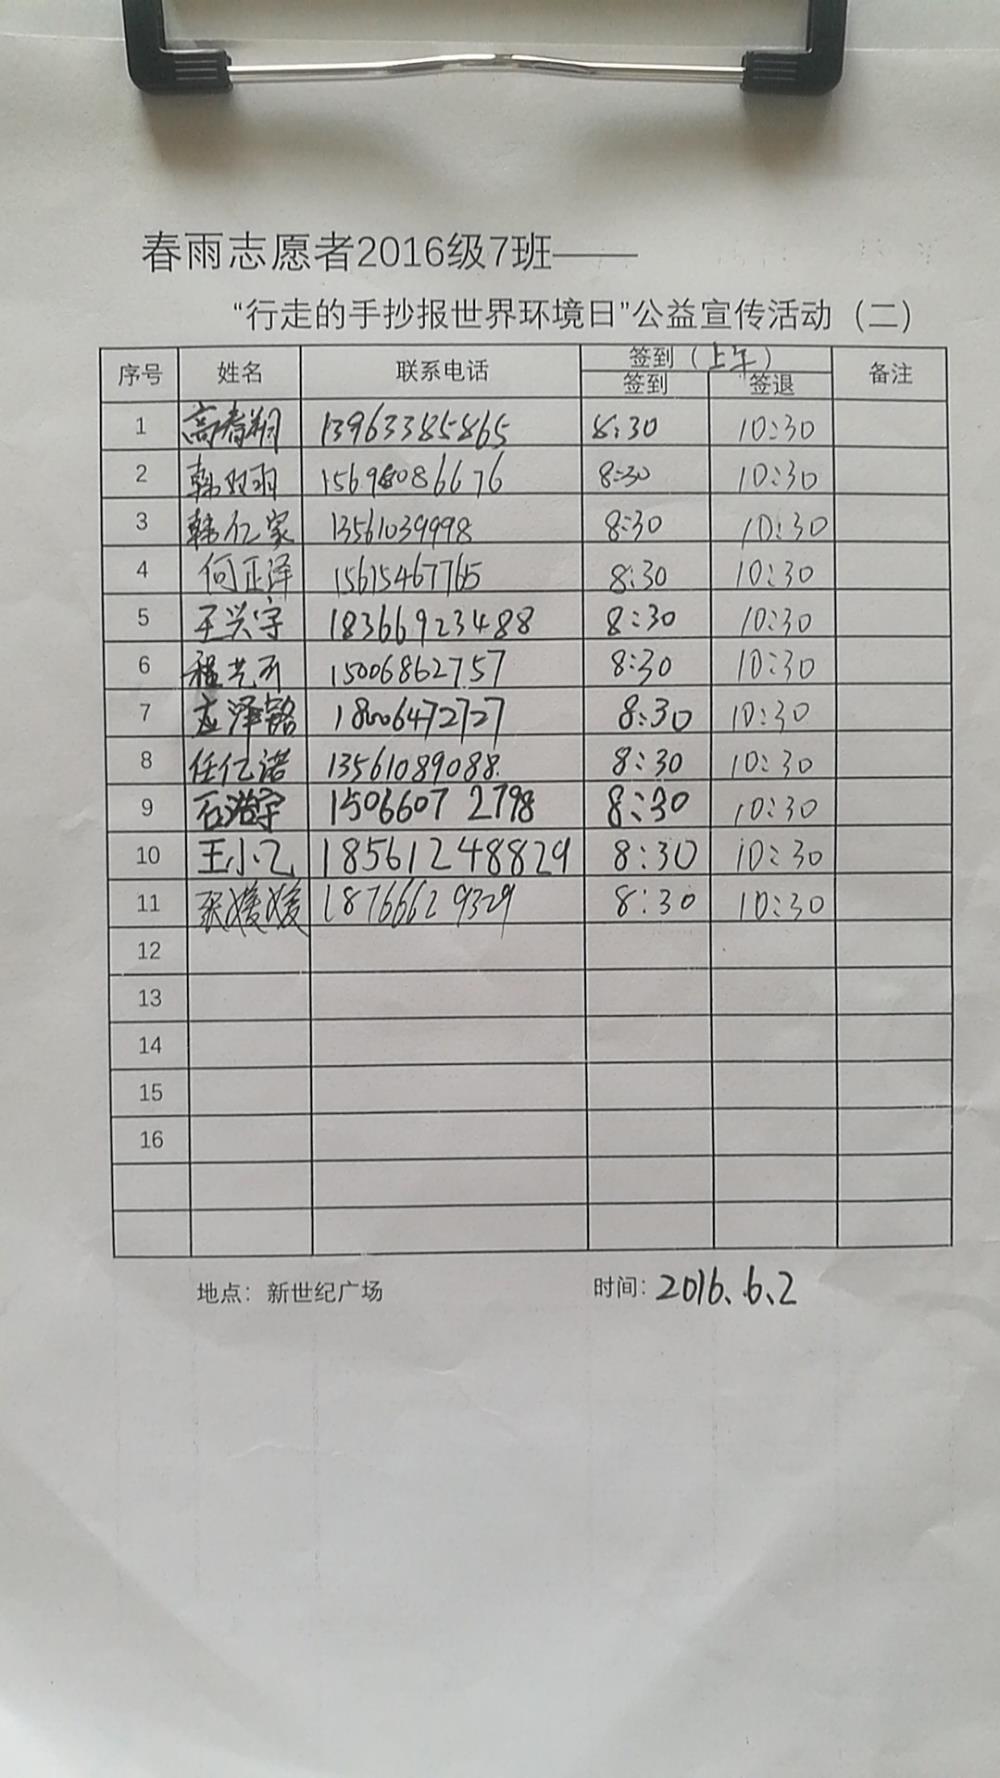 春雨志愿者2016级7班——
“行走的手抄报世界环境日”公益宣传活动（二）
序号 姓名 联系电话 签到（上午） 备注
签到 签退
1 高春翔 13963385865 8:30 10:30
2 韩双羽 8:30 10:30
3 韩亿家 13561039998 8:30 10:30
4 何正泽 15615467765 8:30 10:30
5 王兴宇 18366923488 8:30 10:30
6 程艺 15006862757 8:30 10:30
7 泽铭 18006472727 8:30 10:30
8 任亿诺 13561089088 8:30 10:30
9 石浩宇 15066072798 8:30 10:30
10 王小乙 18561248829 8:30 10:30
11 张媛媛 18766629329 8:30 10:30
12
13
14
15
16
地点：新世纪广场 时间：2016.6.2